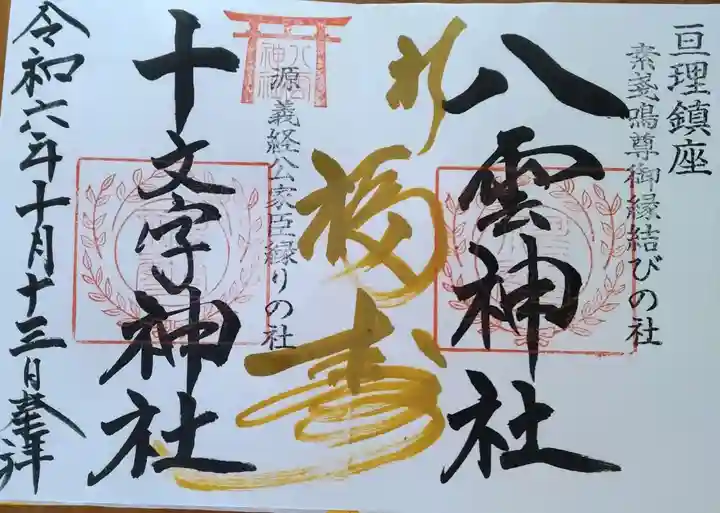 亘理鎮座
素戔嗚尊御縁結びの社
八雲神社
祈
福寿
源義経公家臣縁りの社
十文字神社
令和六年十月十三日奉拝
八雲神社